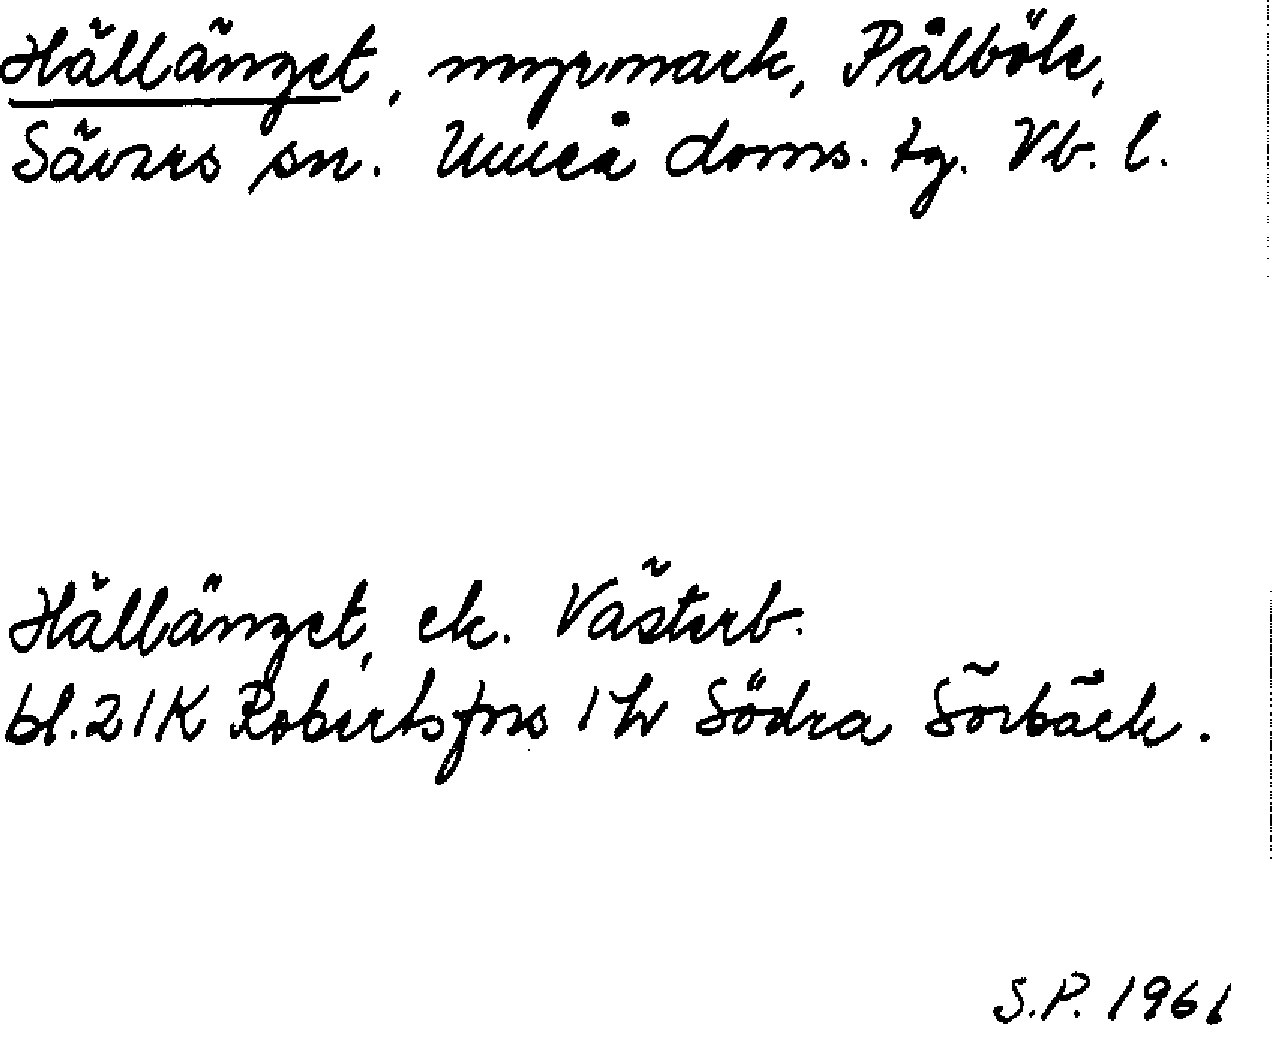 Hällänget, myrmark, Pålböle,
Sävars sn. Umeå doms. tg. Vb. l.
Hällänget, ek. Västerb.
bl. 21K Robertsfors 1 h Södra Sörbäck.
S.P. 1961